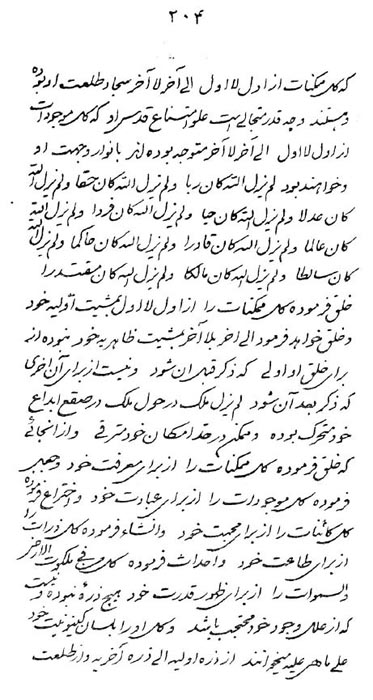 ۲۰۴
که کل ممکنات از اول لا اول الی آخر لا آخر سجاد طلعت او بوده
و هستند و چه قدر متعالی است علو امتناع قدس او که کل موجودات
از اول لا اول الی آخر لا آخر متوجه بوده اند بانوار وجهت او
و خواهند بود لم یزل الله کان ربا ولم یزل الله کان حقا ولم یزل الله
کان عدلا ولم یزل الله کان حیا ولم یزل الله کان فردا ولم یزل الله
کان عالما ولم یزل الله کان قادرا ولم یزل الله کان حاکما ولم یزل الله
کان سالطا ولم یزل الله کان مالکا ولم یزل الله کان مقتدرا
خلق فرموده کل ممکنات را از اول لا اول بمشیت اولیه خود
و خلق خواهد فرمود الی آخر بلا آخر بمشیت ظاهریه خود نبوده انه
برای خلق او اولی که ذکر قبل ان شود و نیست از برای آن آخری
که ذکر بعد آن شود لم یزل ملک در حول ملک در صقع ابداع
خود متحرک بوده و ممکن در حد امکان خود مترقی و از آنجائی
که خلق فرموده کل ممکنات را از برای معرفت خود و
فرموده کل موجودات را از برای عبادت خود و اختراع فرموده
کل کائنات را از برای محبت خود و انشاء فرموده کل ذرات را
از برای طاعت خود و احداث فرموده کل من فی ملکوت الارض
والسموات را از برای ظهور قدرت خود هیچ ذرهٔ نبوده و نیست
که از علی وجود خود محتجب باشد و کل او را بلسان کینونیت خود
علی ما هی علیه میخوانند از ذره اولیه الی ذره آخریه و از طلعت